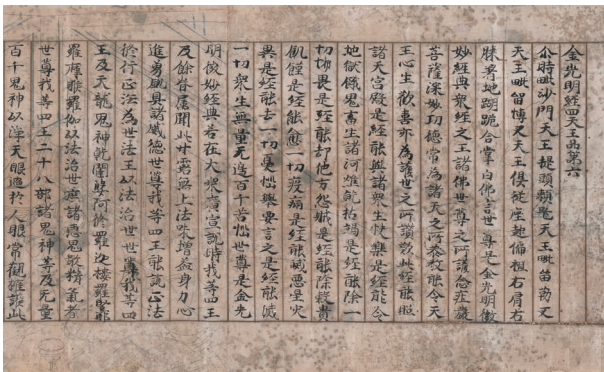 金光明經四天王品第六
尒時毗沙門天王提頭賴吒天王毗留勒叉
天王毗留博叉天王俱從座起偏袒右肩右
膝著地胡跪合掌白佛言世尊是金光明微
妙經典衆經之王諸佛世尊之所護念莊嚴
菩薩深妙功德常為諸天之所恭敬能令天
王心生歡喜亦為護世之所讚歎此經能照
諸天宮殿是經能與諸衆生快樂是經能令
地獄餓鬼畜生諸河燋乾枯竭是經能除一
切怖畏是經能却他方怨賊是經能除穀貴
飢饉是經能愈一切疫病是經能滅惡星
異是經能去一切憂惱舉要言之是經能滅
一切衆生無量无邊百千苦惱世尊是金光
明微妙經典若在大衆廣宣說時我等四王
及餘眷屬聞此甘露无上法味增益身力心
進勇銳具諸威德世尊我等四王能說正法
修行正法為世法王以法治世世尊我等四
王及天龍鬼神乾闥婆阿脩羅迦樓羅緊那
羅摩睺羅伽以法治世遮諸惡鬼噉精氣者
世尊我等四王二十八部諸鬼神等及无量
百千鬼神以淨天眼過於人眼常觀擁護此